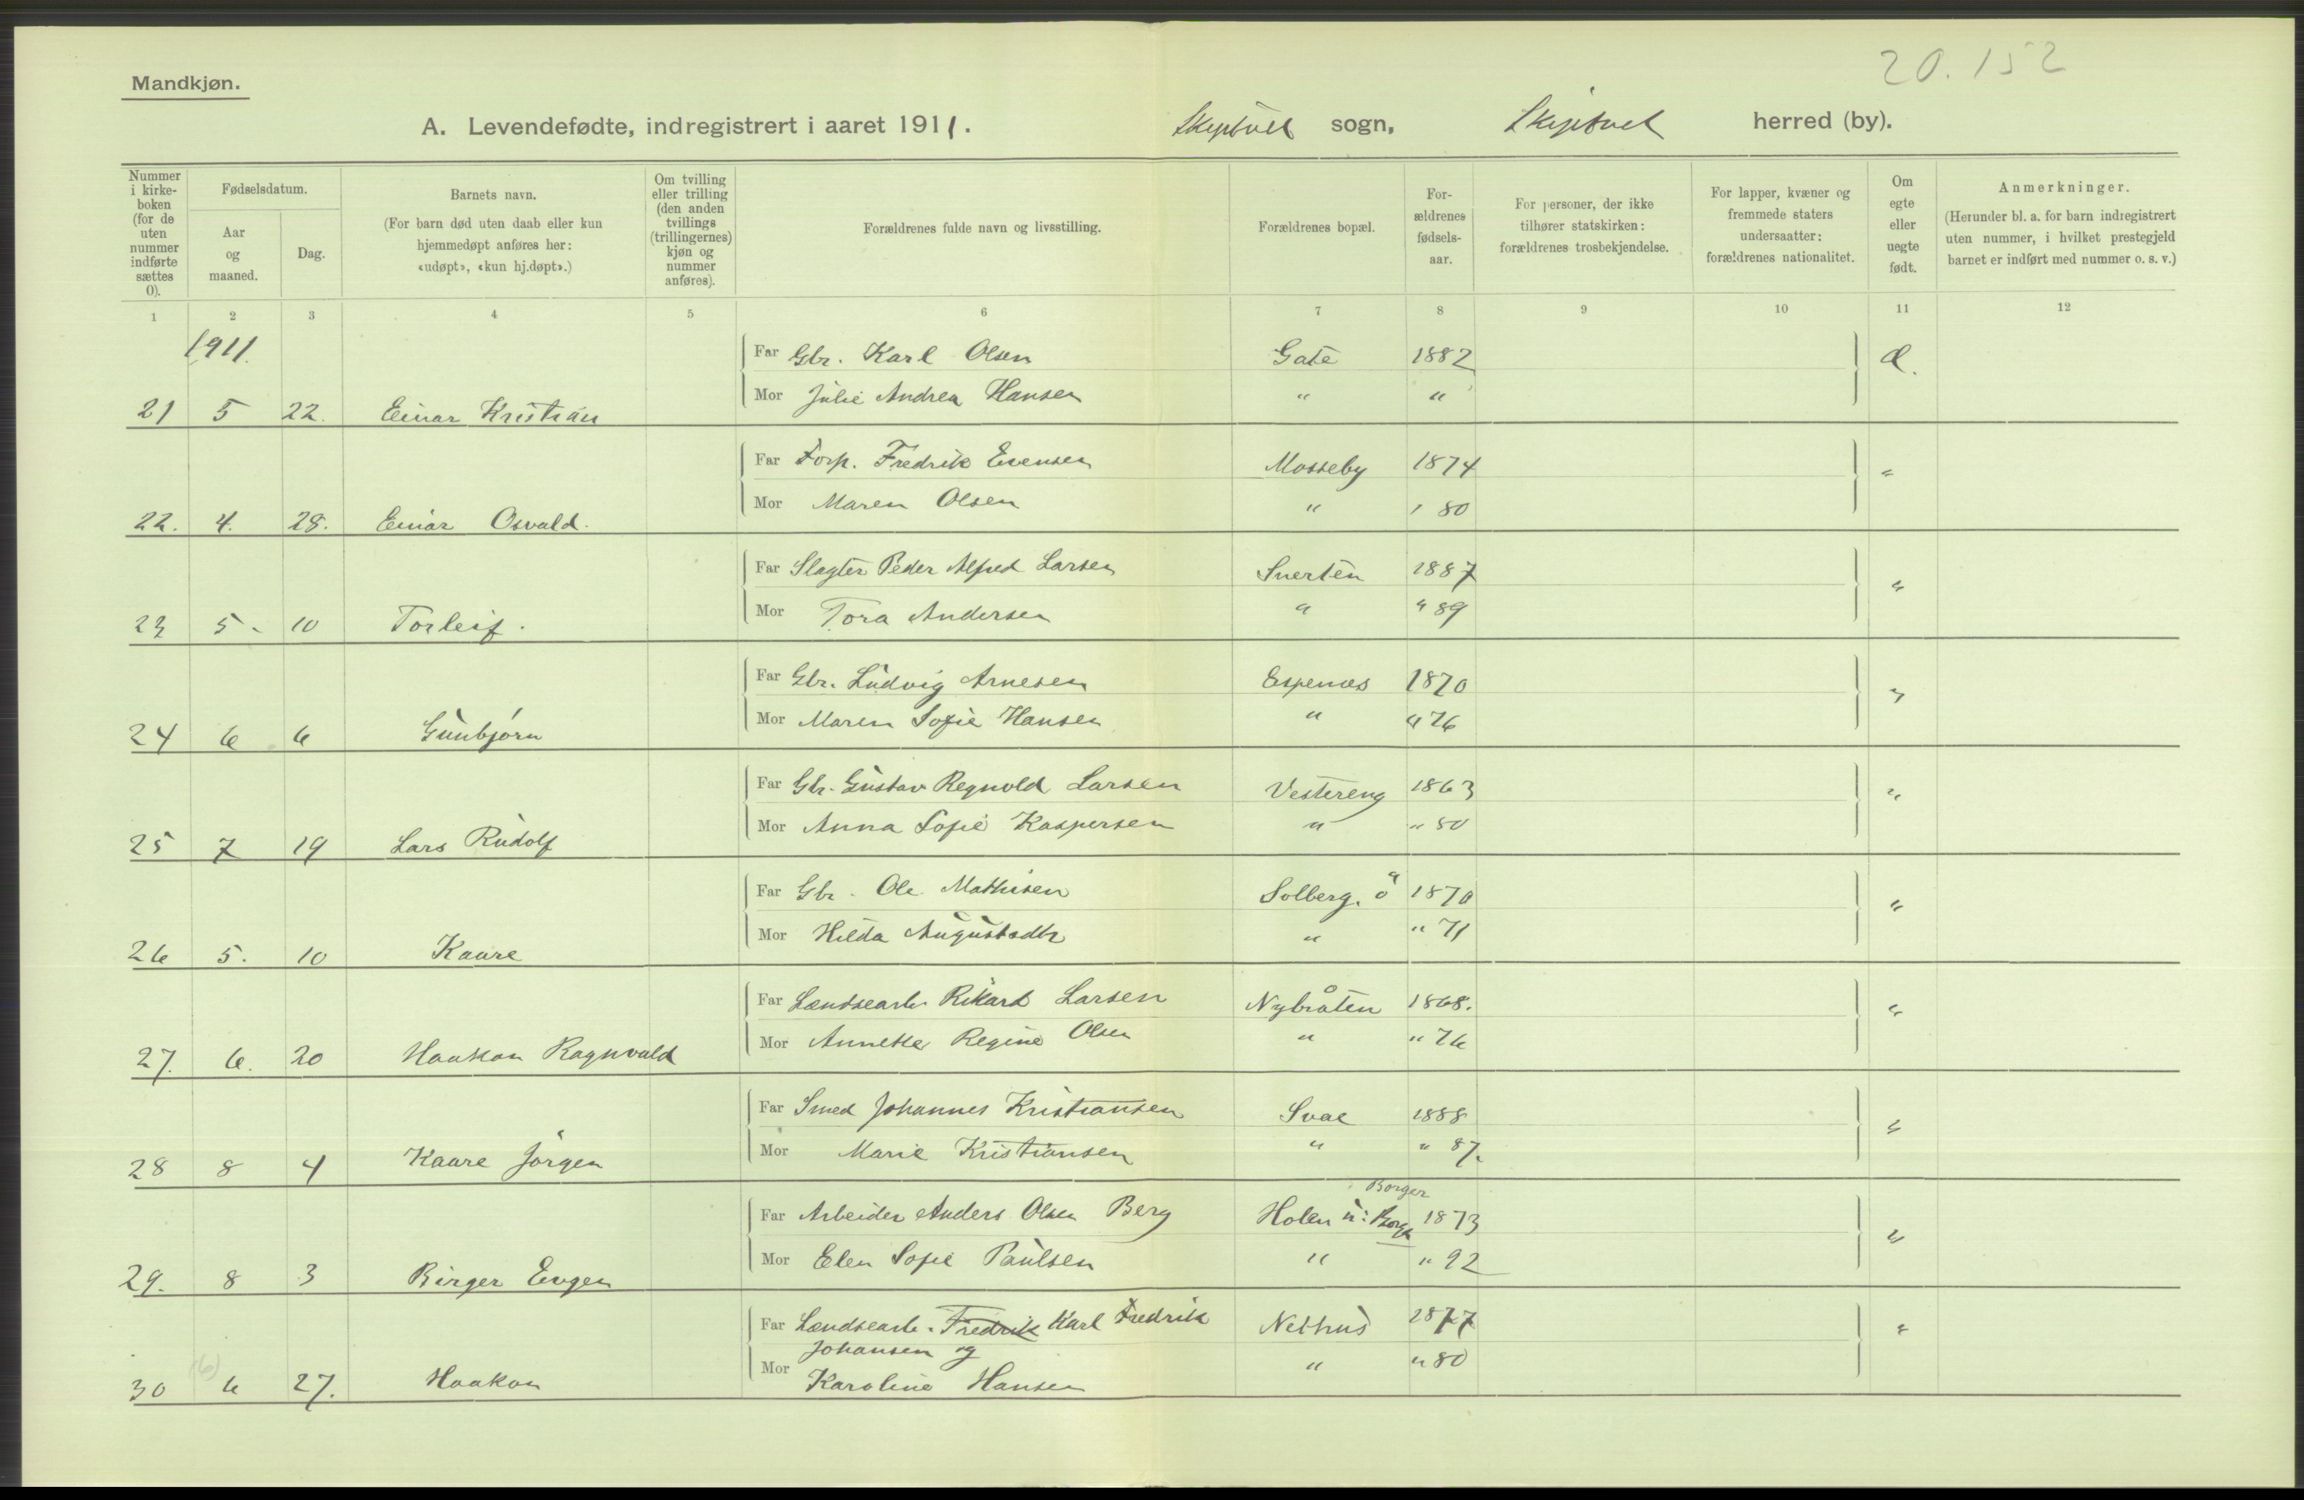 20. 152
Mandkjøn.
A. Levendefødte, indregistrert i aaret 1911. Skiptvet sogn, Skiptvet herred (by).
Nummer i kirke-boken (for de uten nummer indførte sættes 0).
Fødselsdatum.
Aar og maaned.
Dag.
Barnets navn.
(For barn død uten daab eller kun hjemmedøpt anføres her: «udøpt», «kun hj.døpt».)
Om tvilling eller trilling (den anden tvillings (trillingernes) kjøn og nummer anføres).
Forældrenes fulde navn og livsstilling.
Forældrenes bopæl.
For-ældrenes fødsels-aar.
For personer, der ikke tilhører statskirken: forældrenes trosbekjendelse.
For lapper, kvæner og fremmede staters undersaatter: forældrenes nationalitet.
Om egte eller uegte født.
Anmerkninger.
(Herunder bl. a. for barn indregistrert uten nummer, i hvilket prestegjeld barnet er indført med nummer o. s. v.)
1 2 3 4 5 6 7 8 9 10 11 12
1911.
Far Gbr. Karl Olsen Gate 1882 Æ.
Mor Julie Andrea Hansen " "
21 5 22. Einar Kristian
Far Forp. Fredrik Evensen Mosseby 1874 "
Mor Maren Olsen " " 80
22. 4. 28. Einar Osvald.
Far Slagter Peder Alfred Larsen Snerten 1887 "
Mor Tora Andersen " " 89
23 5 - 10 Torleif.
Far Gbr. Ludvig Arnesen Espenæs 1870 "
Mor Maren Sofie Hansen " " 76
24 6 6 Gunbjörn
Far Gbr. Gustav Regnvold Larsen Vestereng 1863 "
Mor Anna Sofie Kaspersen " " 80
25 7 19 Lars Rudolf
Far Gbr. Ole Mathisen Solberg, ö 1870 "
Mor Hilda Augustadtr " " 71
26 5. 10 Kaare
Far Lændsearb. Rikard Larsen Nybråten 1868. "
Mor Annette Regine Olsen " " 76
27. 6. 20 Haakon Ragnvald
Far Smed Johannes Kristiansen Svae 1888 "
Mor Marie Kristiansen " " 87.
28 8 4 Kaare Jörgen
Borger
Far Arbeider Anders Olsen Berg Holen u: Borge 1873 "
Mor Elen Sofie Paulsen " " 92
29. 8 3 Birger Eugen
Far Lændsearb. Fredrik Karl Fredrik Nethus 1877 "
Johansen og
Mor Karoline Hansen " " 80
(6)
30 6 27. Haakon